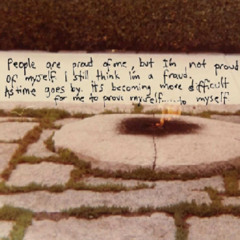 People are proud of me, but I'm not proud
Of myself I still think I'm a fraud.
As time goes by. It's becoming more difficult
for me to prove myself......to myself